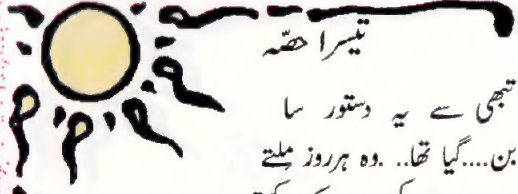 تیسرا حصّہ
تبھی سے یہ دستور سا
بن....گیا تھا.. .وہ ہرروز ملتے